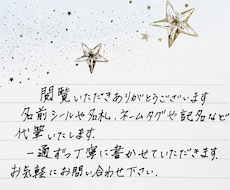 閲覧いただきありがとうございます
名前シールや名札、ネームタグや記名など
代筆いたします。
一通ずつ丁寧に書かせていただきます。
お気軽にお問い合わせ下さい。